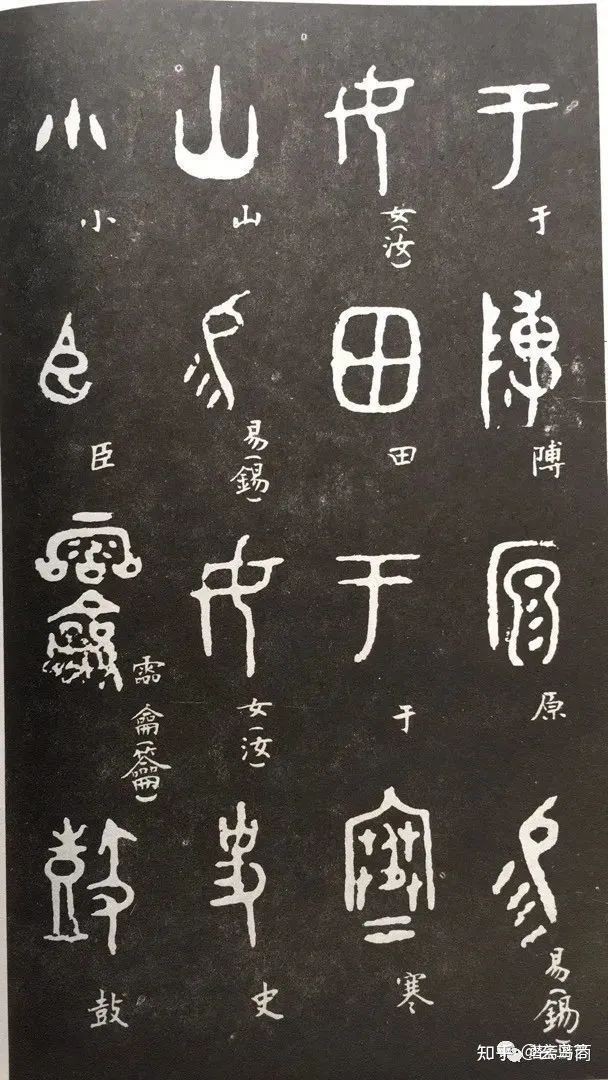 于 原 易(錫)
女(汝) 田 于 寒
山 易(錫) 女(汝) 史
小 臣 霝 龠(籥) 鼓
知乎